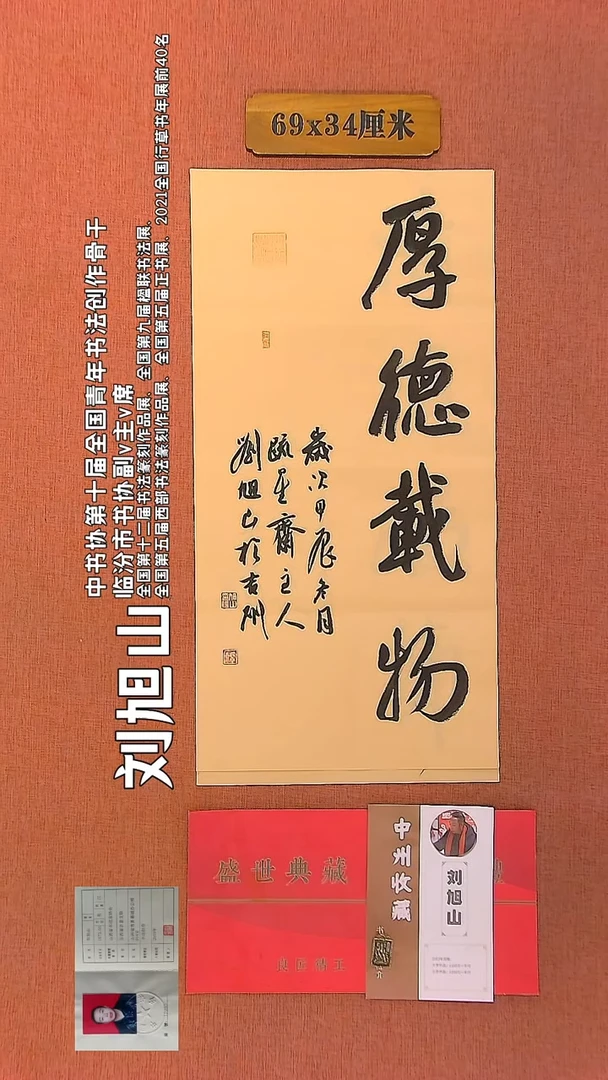 69x34厘米
厚德載物
歲次甲辰冬月
疏星齋主人
劉旭山於吉州
刘旭山
中书协第十届全国青年书法创作骨干
临汾市书协副v主v席
全国第十二届书法篆刻作品展、全国第九届楹联书法展、
全国第五届西部书法篆刻作品展、全国第五届正书展、2021全国行草书年展前40名
盛世典藏
中州收藏
刘旭山